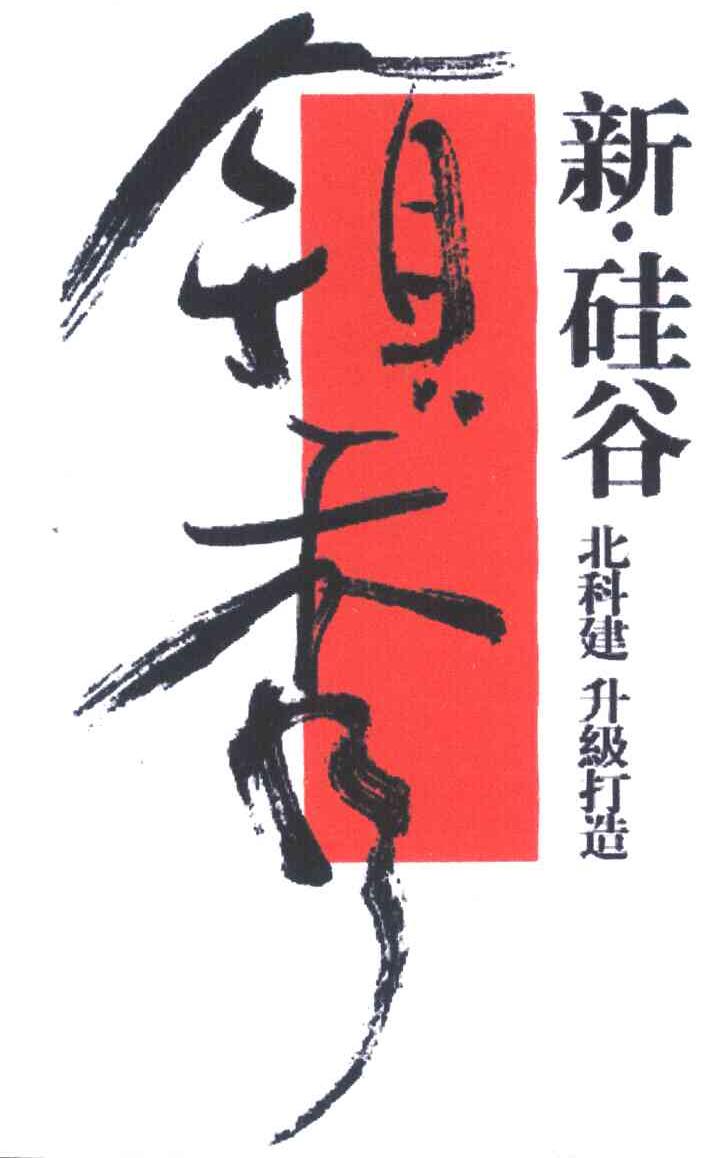 領秀
新·硅谷
北科建 升級打造